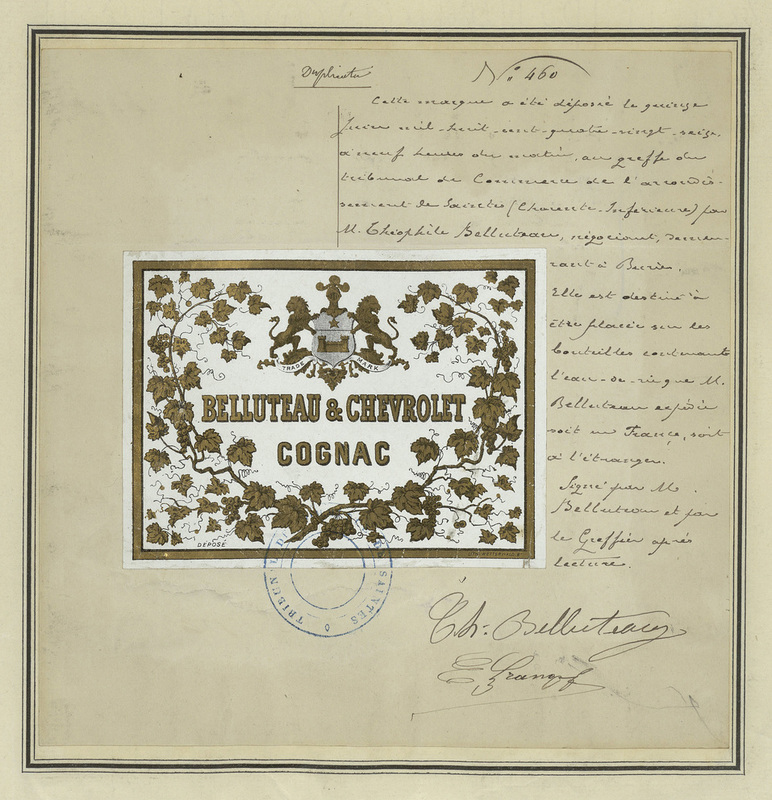 Duplicata
N° 460
Cette marque a été déposée le quinze
Juin mil-huit-cent-quatre-vingt-seize,
à neuf heures du matin, au greffe du
tribunal de Commerce de l'arrondis-
sement de Saintes (Charente-Inférieure) par
M. Théophile Belluteau, négociant, demeu-
rant à Burie.
Elle est destinée à
être placée sur les
bouteilles contenant
l'eau-de-vie que M.
Belluteau expédie
soit en France, soit
à l'étranger.
Signé par M.
Belluteau et par
le Greffier après
lecture.
TRADE MARK
BELLUTEAU & CHEVROLET
COGNAC
DEPOSÉ
TRIBUNAL D SAINTES
Th. Belluteau